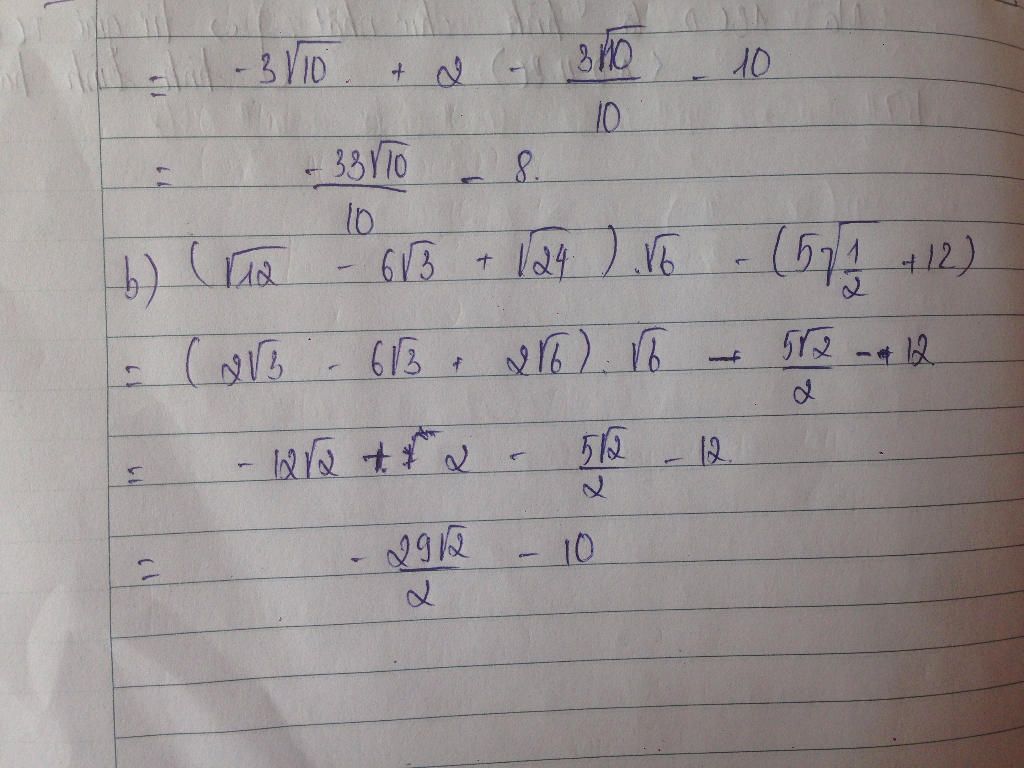 = -3√10 + 2 - 3√10/10 - 10
= -33√10/10 - 8.
b) (√12 - 6√3 + √24).√6 - (5√1/2 + 12)
= (2√3 - 6√3 + 2√6).√6 - 5√2/2 - 12
= -12√2 + 2 - 5√2/2 - 12.
= -29√2/2 - 10